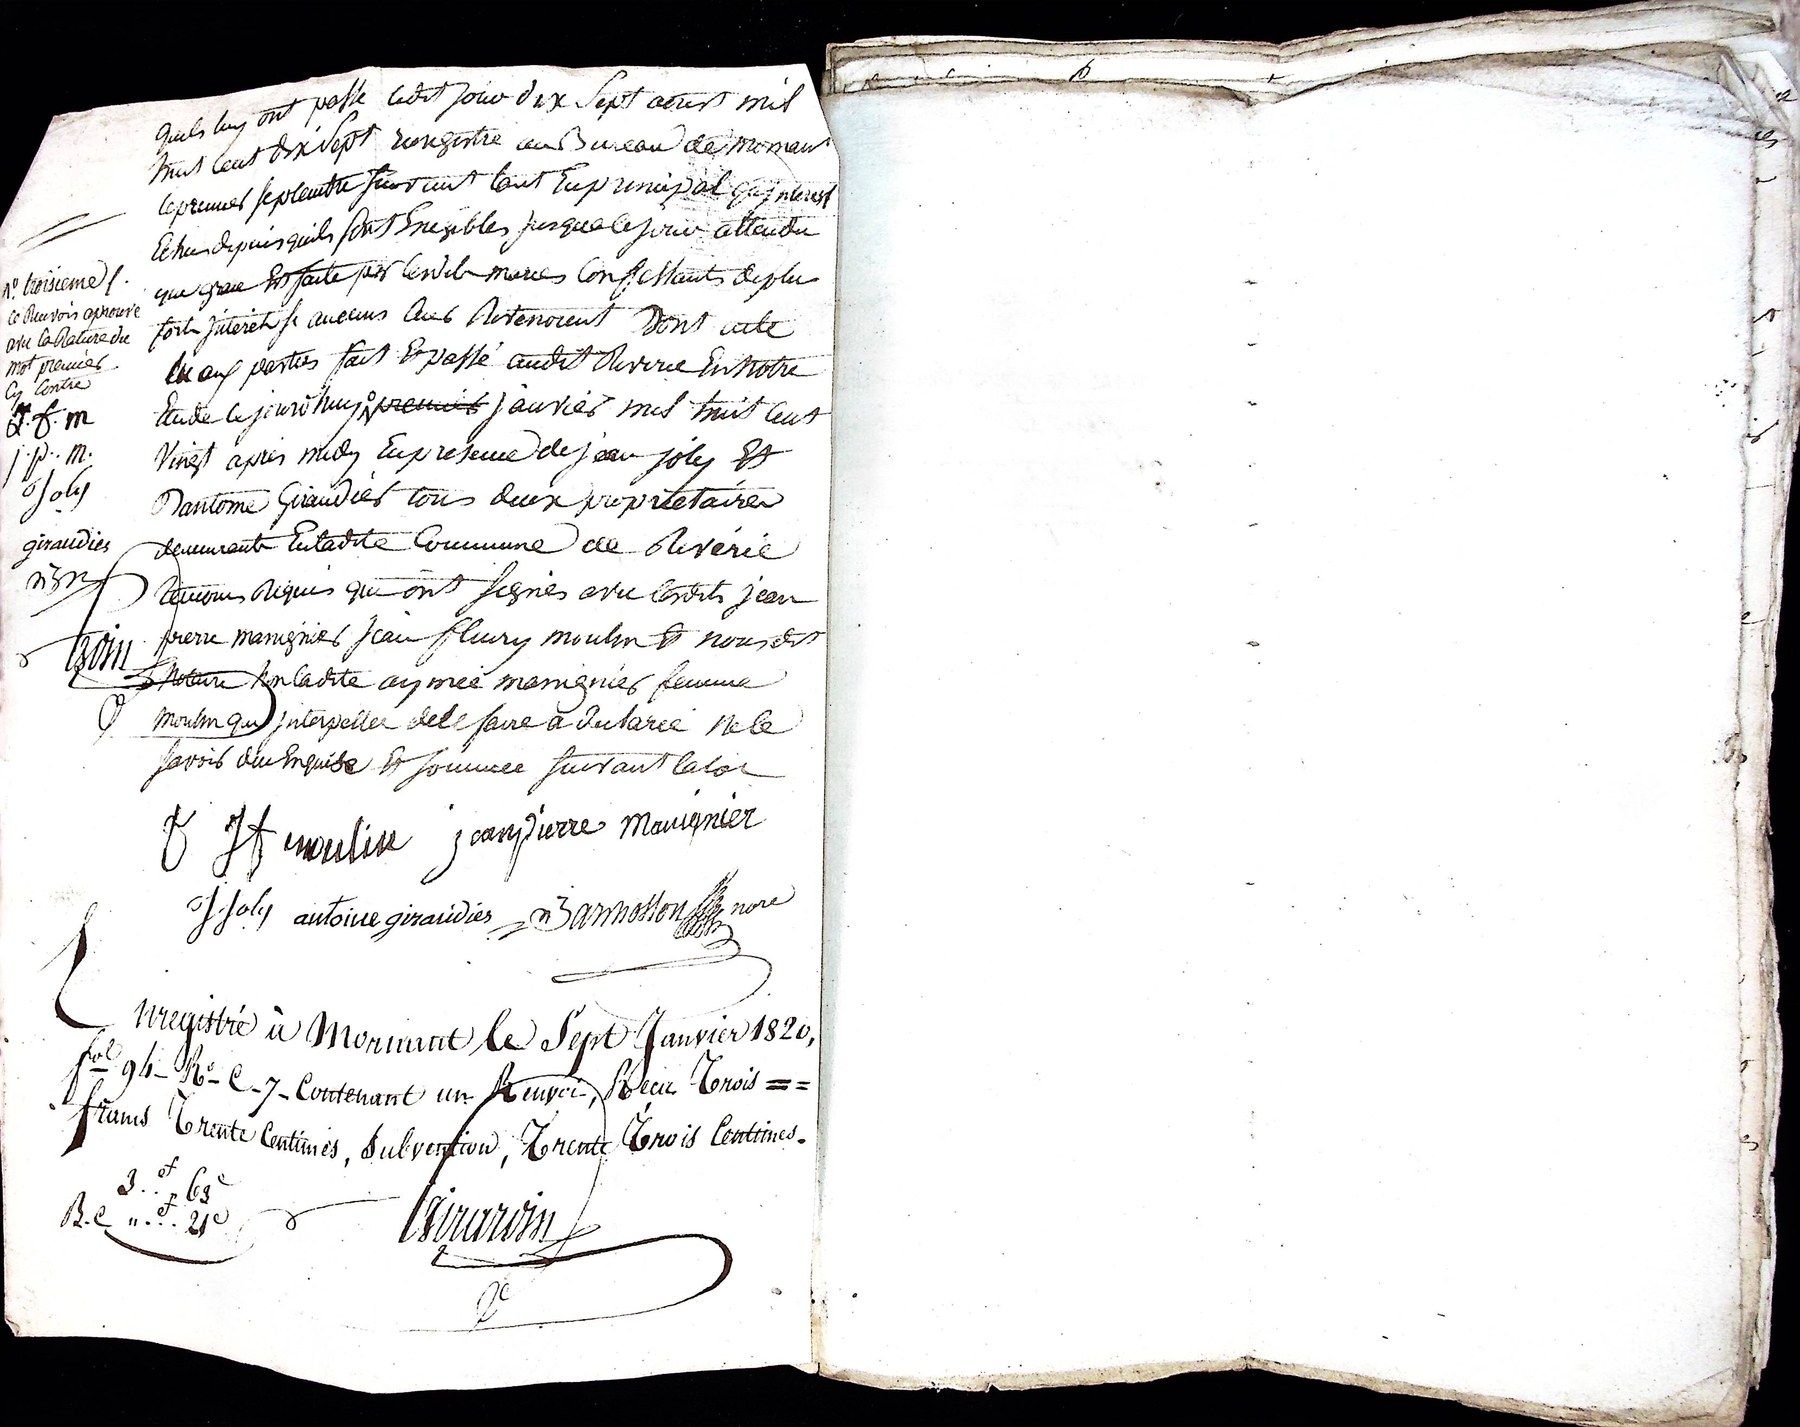 quils luy ont passé ledit jour dix Sept aoust mil
huit cent dix Sept enregistré au Bureau de mornant
le premier septembre suivant tant En principal qu'interest
Echus depuis quils sont Exigibles jusqua ce jour attendu
que grace Est faite par lesdits maries Confessants deplus
forts jnterets si aucuns leurs Revenoient Dont acte
Lu aux parties fait Et passé audit Riverie En notre
Etude ce jourdhuy premier janvier mil huit Cent
Vingt apres midy En presence de jean joly Et
D'antoine Giraudier tous deux proprietaires
demeurants En ladite Commune de Riverie
temoins Requis qui ont signés avec lesdits jean
pierre manignier jean fleury moulin Et nousdit
Notaire non ladite aymée manignier femme
moulin qui jnterpellée dele faire a declaré ne le
savoir duement Enquise Et sommée suivant la loi
No troisieme /.
ce Renvoi aprouvé
avec la Rature du
mot premier
Cy Contre
J. f. m
j. p. m.
J Joly
giraudier
J f moulin jean pierre Manignier
J Joly antoine giraudier Barmosson nore
Enregistré à Mornant le Sept Janvier 1820,
fol 94 Ro C. 7. Contenant un Renvoi, Reçu Trois ==
francs Trente Centimes, Subvention, Trente Trois Centimes.
3.. f 63 c
R. C. ".. f.. 21 c
Girardin